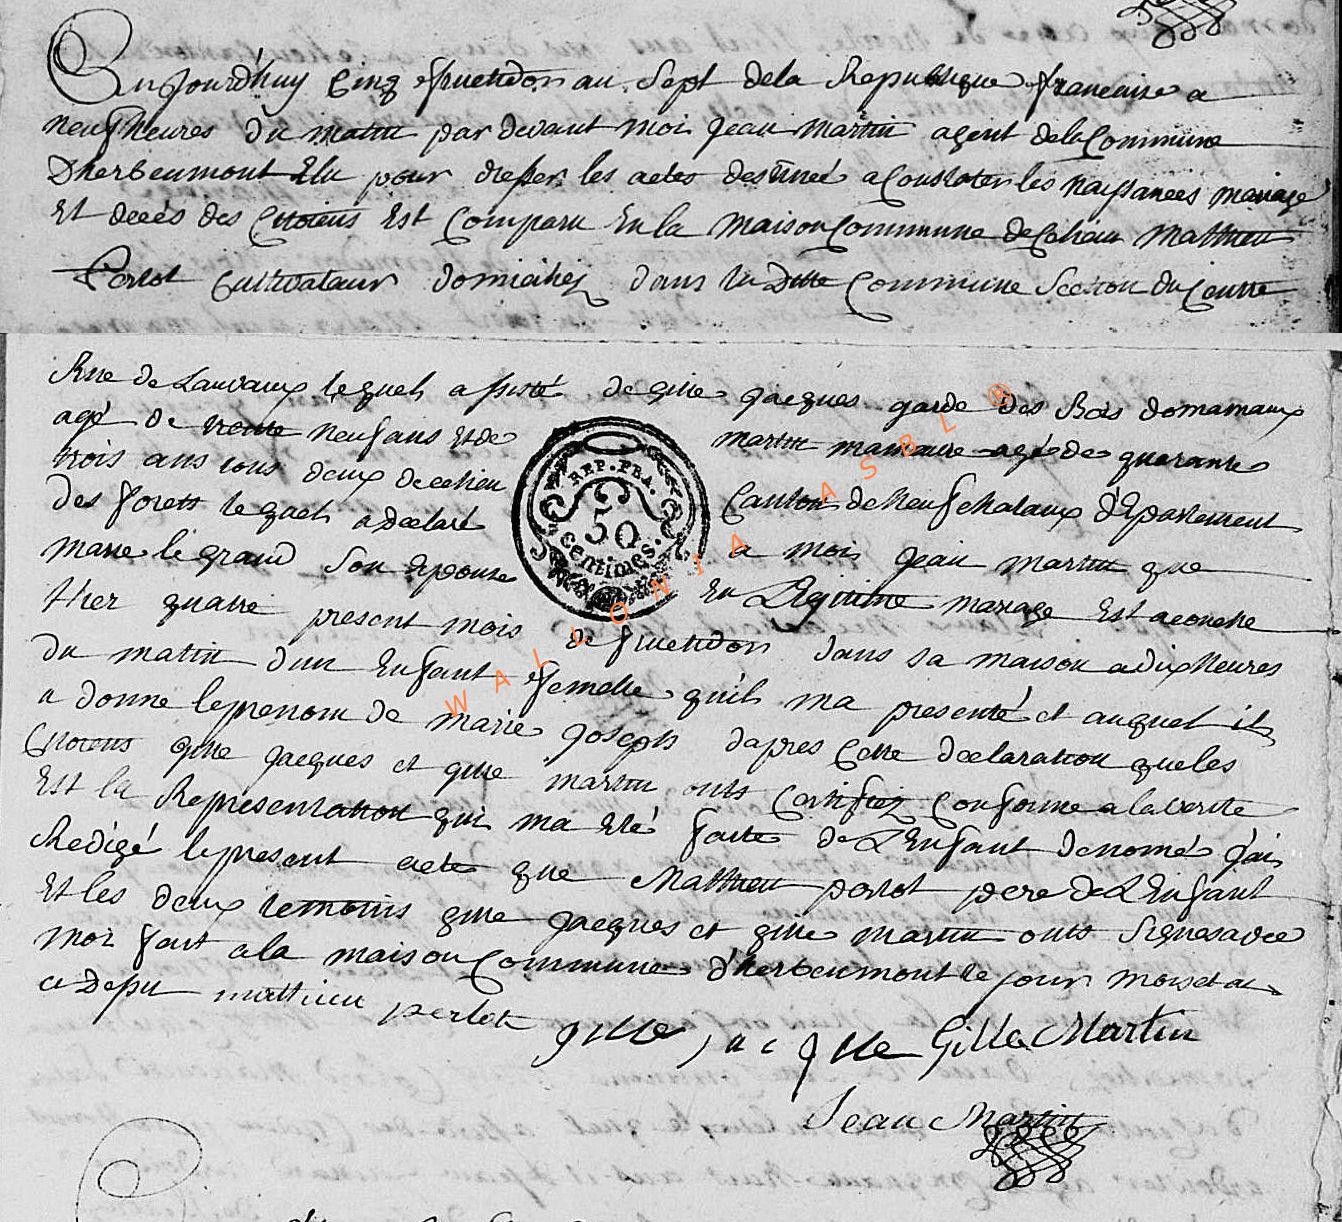 Aujourdhuy Cinq fructidor au Sept dela Republique francaise a
neuf heures du matin par devant moi jean martin agent dela Commune
Dherbeumont Elu pour dresser les actes destinée a Constater les naissances mariage
Et decés des Citoiens Est Comparu En la maison Commune de Ce lieu Mathieu
Perlot Cultivateur domiciliez dans la ditte Commune Section du Centre
Rue de Lauvaux lequel assisté de gille jacques garde des Bois domaniaux
agé de trente neuf ans et de martin agé de quarante
trois ans tous deux de ce lieu Canton de Neufchataux departement
des forets lequel a declaré a moi jean martin que
marie le grand Son Epouse En Legitime mariage Est acouche
hier quatre present mois de fructidor dans sa maison a dix heures
du matin dun Enfant femelle quil ma presenté et auquel il
a donne le prenom de marie joseph dapres Cette declaration que les
Citoiens gille jacques et gille martin onts Certifiez Conforme a la verite
Est la Representation qui ma Eté faite de LEnfant denomé jai
Redigé le present acte que Mathieu perlot pere de LEnfant
Et les deux temoins gille jacques et gille martin onts Signes avec
moi fait a la maison Commune dherbeumont le jour mois et an
ci depu mathieu perlot gille jacque Gille Martin
Jean Martin
REP. FRA.
50
centimes.
WALLONIA ASBL ®